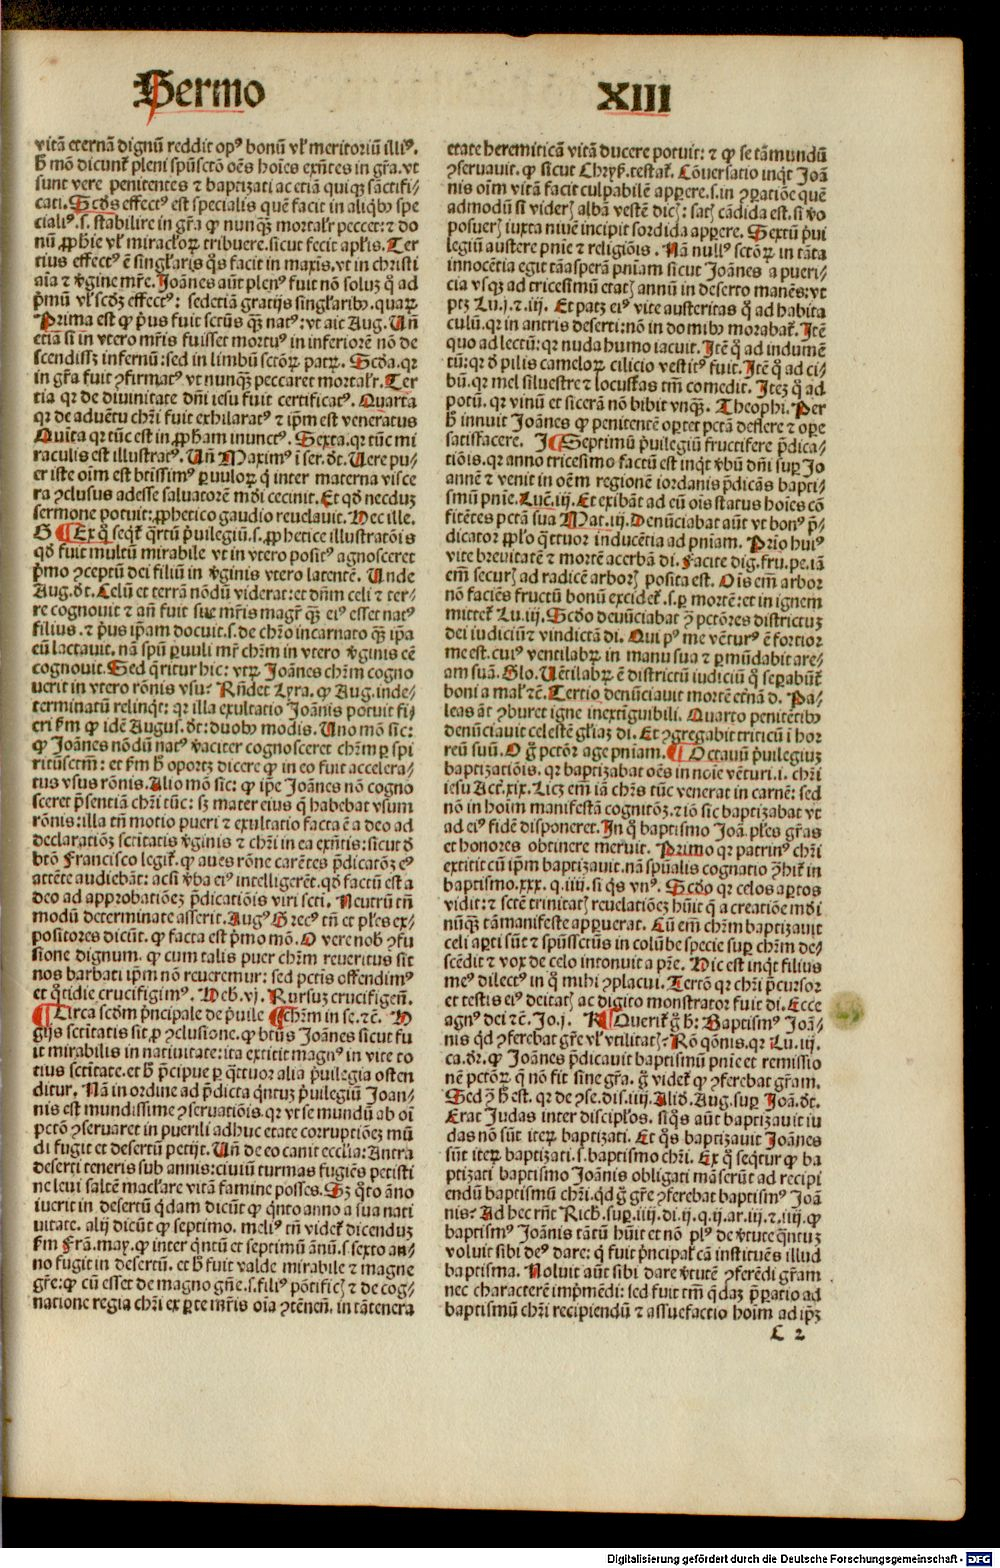 Sermo XIII
vitā eternā dignū reddit opꝰ bonū vl' meritoriū illiꝰ.
h̄ mō dicunt̄ pleni spūsctō oēs hoīes exn̄tes in gr̄a. vt
sunt vere penitentes ⁊ baptizati ac etiā quiqꝫ sāctifi/
cati. Scd̄s effectꝰ est specialis quē facit in aliqb̄ꝯ spe
cialiꝰ. s. stabilire in gr̄a ꝙ nunqꝫ mortalr̄ peccet: ⁊ do
nū ꝓphīe vl' miracl'oꝝ tribuere. sicut fecit apl̄is. Ter
tius effectꝰ ē singl'aris q̄s facit in maxīs. vt in christi
aīa ⁊ v̄gine mr̄e. Joānes aūt plenꝰ fuit nō soluꝫ q̄ ad
p̄mū vl' scd̄ꝫ effectꝰ: sed etiā gratijs singl'aribꝯ. quaꝝ
Prima est ꝙ p̄us fuit sctūs qꝫ natꝰ: vt ait Aug. Un̄
etiā si in vtero mr̄is fuisset mortuꝰ in inferiorē nō de
scendissꝫ infernū: sed in limbū sctōꝝ patꝝ. Scd̄a. qr
in gr̄a fuit ꝯfirmatꝰ vt nunqꝫ peccaret mortalr̄. Ter
tia qr de diuinitate dn̄i iesu fuit certificatꝰ. Quarta
qr de aduētu chr̄i fuit exhilaratꝰ ⁊ ip̄m est veneratus
Quīta qr tūc est in ꝓph̄am inunctꝰ. Sexta. qr tūc mi
raculis est illustratꝰ. Un̄ Maximꝰ ī ser. d̄t. Uere pu/
er iste oīm est btīssimꝰ ꝑuuloꝝ q̄ inter materna visce
ra ꝯclusus adesse saluatorē mōi cecinit. Et qd̄ necduꝫ
sermone potuit: ꝓphetico gaudio reuelauit. Hec ille.
G ¶ Ex q̄ seqt̄ q̄rtū p̄uilegiū. s. ꝓphetice illustratōis
qd̄ fuit multū mirabile vt in vtero positꝰ agnosceret
p̄mo ꝯceptū dei filiū in v̄ginis vtero latentē. Unde
Aug. d̄t. Celū et terrā nōdū viderat: et dn̄m celi ⁊ ter/
re cognouit ⁊ an̄ fuit sue mr̄is magr̄ qꝫ eiꝰ esset natꝰ
filius. ⁊ p̄us ip̄am docuit. s. de chr̄o incarnato qꝫ ip̄a
eū lactauit. nā spū ꝑuuli mr̄ chr̄m in vtero v̄ginis eē
cognouit. Sed q̄ritur hic: vtꝝ Joānes chr̄m cogno
uerit in vtero rōnis vsu? Rn̄det Lyra. ꝙ Aug. inde/
terminatū relinqt: qr illa exultatio Joānis potuit fi/
eri fm̄ ꝙ idē Augus. d̄t: duobꝯ modis. Uno mō sic:
ꝙ Joānes nōdū natꝰ v̄aciter cognosceret chr̄m ꝑ spi
ritūsctm̄: et fm̄ h̄ oportꝫ dicere ꝙ in eo fuit accelera/
tus vsus rōnis. Alio mō sic: ꝙ ip̄e Joānes nō cogno
sceret p̄sentiā chr̄i tūc: sꝫ mater eius q̄ habebat vsum
rōnis: illa tn̄ motio pueri ⁊ exultatio facta ē a deo ad
declaratōeꝫ sctītatis v̄ginis ⁊ chr̄i in ea exn̄tis: sicut d̄
btō Francisco legit̄. ꝙ aues rōne carētes p̄dicatōꝫ eꝰ
attēte audiebāt: acsi v̄ba eiꝰ intelligerēt. qd̄ factū est a
deo ad approbatōeꝫ p̄dicatiōis viri scti. Neutrū tn̄
modū determinate asserit. Augꝰ Grecꝰ tn̄ et pl̄es ex/
positores dicūt. ꝙ facta est p̄mo mō. O vere nob̄ ꝯfu
sione dignum. ꝙ cum talis puer chr̄m reueritus sit
nos barbati ip̄m nō reueremur: sed pctīs offendimꝰ
et q̄tidie crucifigimꝰ. Heb. vj. Rursuꝫ crucifigen̄.
¶ Circa scd̄m p̄ncipale de p̄uile ¶ chr̄m in se. ⁊c̄. H
gijs sctītatis sit ꝑ ꝯclusione. ꝙ btūs Joānes sicut fu
it mirabilis in natiuitate: ita extitit magnꝰ in vite to
tius sctītate. et h̄ p̄cipue ꝑ q̄ttuor alia p̄uilegia osten
ditur. Nā in ordine ad p̄dicta q̄ntuꝫ p̄uilegiū Joan/
nis est mundissime ꝯseruatiōis. qr vt se mundū ab oī
pctō ꝯseruaret in puerili adhuc etate corruptiōeꝫ mū
di fugit et desertū petijt. Un̄ de eo canit ecclīa: Antra
deserti teneris sub annis: ciuiū turmas fugiēs petisti
ne leui saltē macl'are vitā famine posses. Sꝫ q̄to āno
iuerit in desertū q̄dam dicūt ꝙ q̄nto anno a sua nati
uitate. alij dicūt ꝙ septimo. meliꝰ tn̄ videt̄ dicenduꝫ
fm̄ Frā. may. ꝙ inter q̄ntū et septimū ānū. s. sexto an/
no fugit in desertū. et h̄ fuit valde mirabile ⁊ magne
gr̄e: ꝙ cū esset de magno gn̄e. s. filiꝰ pōtific̄ ⁊ de cog/
natione regia chr̄i ex ꝑte mr̄is oīa ꝯtēnen̄. in tā tenera
etate heremiticā vitā ducere potuit: ⁊ ꝙ se tā mundū
ꝯseruauit. ꝙ sicut Chrys. testat̄. Cōuersatio inqt Joā
nis oīm vitā facit culpabilē apꝑere. s. in ꝯꝑatiōe quē
admodū si viderꝫ albā vestē dicꝫ: satꝫ cādida est. si v̄o
posuerꝫ iuxta niuē incipit sordida apꝑere. Sextū p̄ui
legiū austere pnīe ⁊ religiōis. Nā nullꝰ sctōꝝ in tāta
innocētia egit tā asperā pnīam sicut Joānes a pueri/
cia vsqꝫ ad tricesimū etatꝫ annū in deserto manēs: vt
ptꝫ Lu. j. ⁊ iij. Et patꝫ eiꝰ vite austeritas q̄ ad habita
culū. qr in antris deserti: nō in domibꝯ morabat̄. Itē
quo ad lectū: qr nuda humo iacuit. Itē q̄ ad indumē
tū: qr d̄ pilis cameloꝝ cilicio vestitꝰ fuit. Itē q̄ ad ci/
bū. qr mel siluestre ⁊ locustas tm̄ comedit. Iteꝫ q̄ ad
potū. qr vinū et sicerā nō bibit vnqꝫ. Theophi. Per
h̄ innuit Joānes ꝙ penitentē oꝑtet pctā deflere ⁊ oꝑe
satisfacere. J ¶ Septimū p̄uilegiū fructifere p̄dica/
tiōis. qr anno tricesimo factū est inqt v̄bū dn̄i suꝑ Jo
annē ⁊ venit in oēm regionē iordanis p̄dicās bapti/
smū pnīe. Lucē. iij. Et exibāt ad eū oīs status hoīes cō
fitētes pctā sua Mat. iij. Denūciabat aūt vt bonꝰ p̄/
dicator ꝓplo q̄ttuor inducētia ad pniam. Prīo huiꝰ
vite breuitatē ⁊ mortē acerbā di. Facite dig. fru. pe. iā
em̄ securꝫ ad radicē arborꝫ posita est. Oīs em̄ arbor
nō faciēs fructū bonū excidet̄. s. ꝑ mortē: et in ignem
mittet̄ Lu. iij. Scd̄o denūciabat ꝯ̄ pctōres districtuꝫ
dei iudiciū ⁊ vindictā di. Qui pꝰ me vēturꝰ ē fortior
me est. cuiꝰ ventilabꝝ in manu sua ⁊ ꝑmūdabit are/
am suā. Glo. Uētilabꝝ ē districtū iudiciū q̄ seꝑabūt̄
boni a mal'. ⁊c̄. Tertio denūciauit mortē et̄nā d. Pa/
leas āt ꝯburet igne inextīguibili. Quarto penitētibꝯ
denūciauit celestē gl'iaꝫ di. Et ꝯgregabit triticū ī hor
reū suū. O ḡ pctōr age pniam. ¶ Octauū p̄uilegiuꝫ
baptizatiōis. qr baptizabat oēs in noīe vēturi. i. chr̄i
iesu Act̄. xix. Licꝫ em̄ iā chr̄s tūc venerat in carnē: sed
nō in hoīm manifestā cognitōꝫ. ⁊ iō sic baptizabat vt
ad eiꝰ fidē disponeret. In q̄ baptismo Joā. pl̄es gr̄as
et honores obtinere meruit. Primo qr patrinꝰ chr̄i
extitit cū ip̄m baptizauit. nā spūalis cognatio ꝯ̄hit̄ in
baptismo. xxx. q. iiij. si q̄s vnꝰ. Scd̄o qr celos aꝑtos
vidit: ⁊ sctē trinitatꝫ reuelatiōeꝫ hūit q̄ a creatiōe mōi
nūqꝫ tā manifeste apꝑuerat. Cū em̄ chr̄m baptizauit
celi aꝑti sūt ⁊ spūssctūs in colūbe specie suꝑ chr̄m de/
scēdit ⁊ vox de celo intonuit a pr̄e. Hic est inqt filius
meꝰ dilectꝰ in q̄ mihi ꝯplacui. Tertō qr chr̄i p̄cursor
et testis eiꝰ deitatꝫ ac digito monstrator fuit di. Ecce
agnꝰ dei ⁊c̄. Jo. j. K ¶ Querit̄ ḡ h̄: Baptismꝰ Joā/
nis qd ꝯferebat gr̄e vl' vtilitatꝫ? Rō q̄onis. qr Lu. iij.
ca. dr̄. ꝙ Joānes p̄dicauit baptismū pnīe et remissio
nē pctōꝝ. q̄ nō fit sine gr̄a. ḡ videt̄ ꝙ ꝯferebat gr̄am.
Sed ꝯ̄ h̄ est. qr de ꝯse. dis. iiij. Alid̄. Aug. suꝑ Joā. d̄t.
Erat Judas inter discipl'os. siq̄s aūt baptizauit iu
das nō sūt iteꝝ baptizati. Et q̄s baptizauit Joānes
sūt iteꝝ baptizati. s. baptismo chr̄i. Ex q̄ seqtur ꝙ ba
ptizati baptismo Joānis obligati māserūt ad recipi
endū baptismū chr̄i. qd ḡ gr̄e ꝯferebat baptismꝰ Joā
nis? Ad hec rn̄t Rich. suꝑ. iiij. di. ij. q. ij. ar. iij. ⁊. iiij. ꝙ
baptismꝰ Joānis tātū hūit et nō plꝰ de v̄tute q̄ntuꝫ
voluit sibi deꝰ dare: q̄ fuit p̄ncipal' cā instituēs illud
baptisma. Noluit aūt sibi dare v̄tutē ꝯferēdi gr̄am
nec characterē imp̄mēdi: sed fuit tm̄ q̄daꝫ p̄ꝑatio ad
baptismū chr̄i recipiendū ⁊ assuefactio hoīm ad ip̄ꝫ
C 2
Digitalisierung gefördert durch die Deutsche Forschungsgemeinschaft - DFG